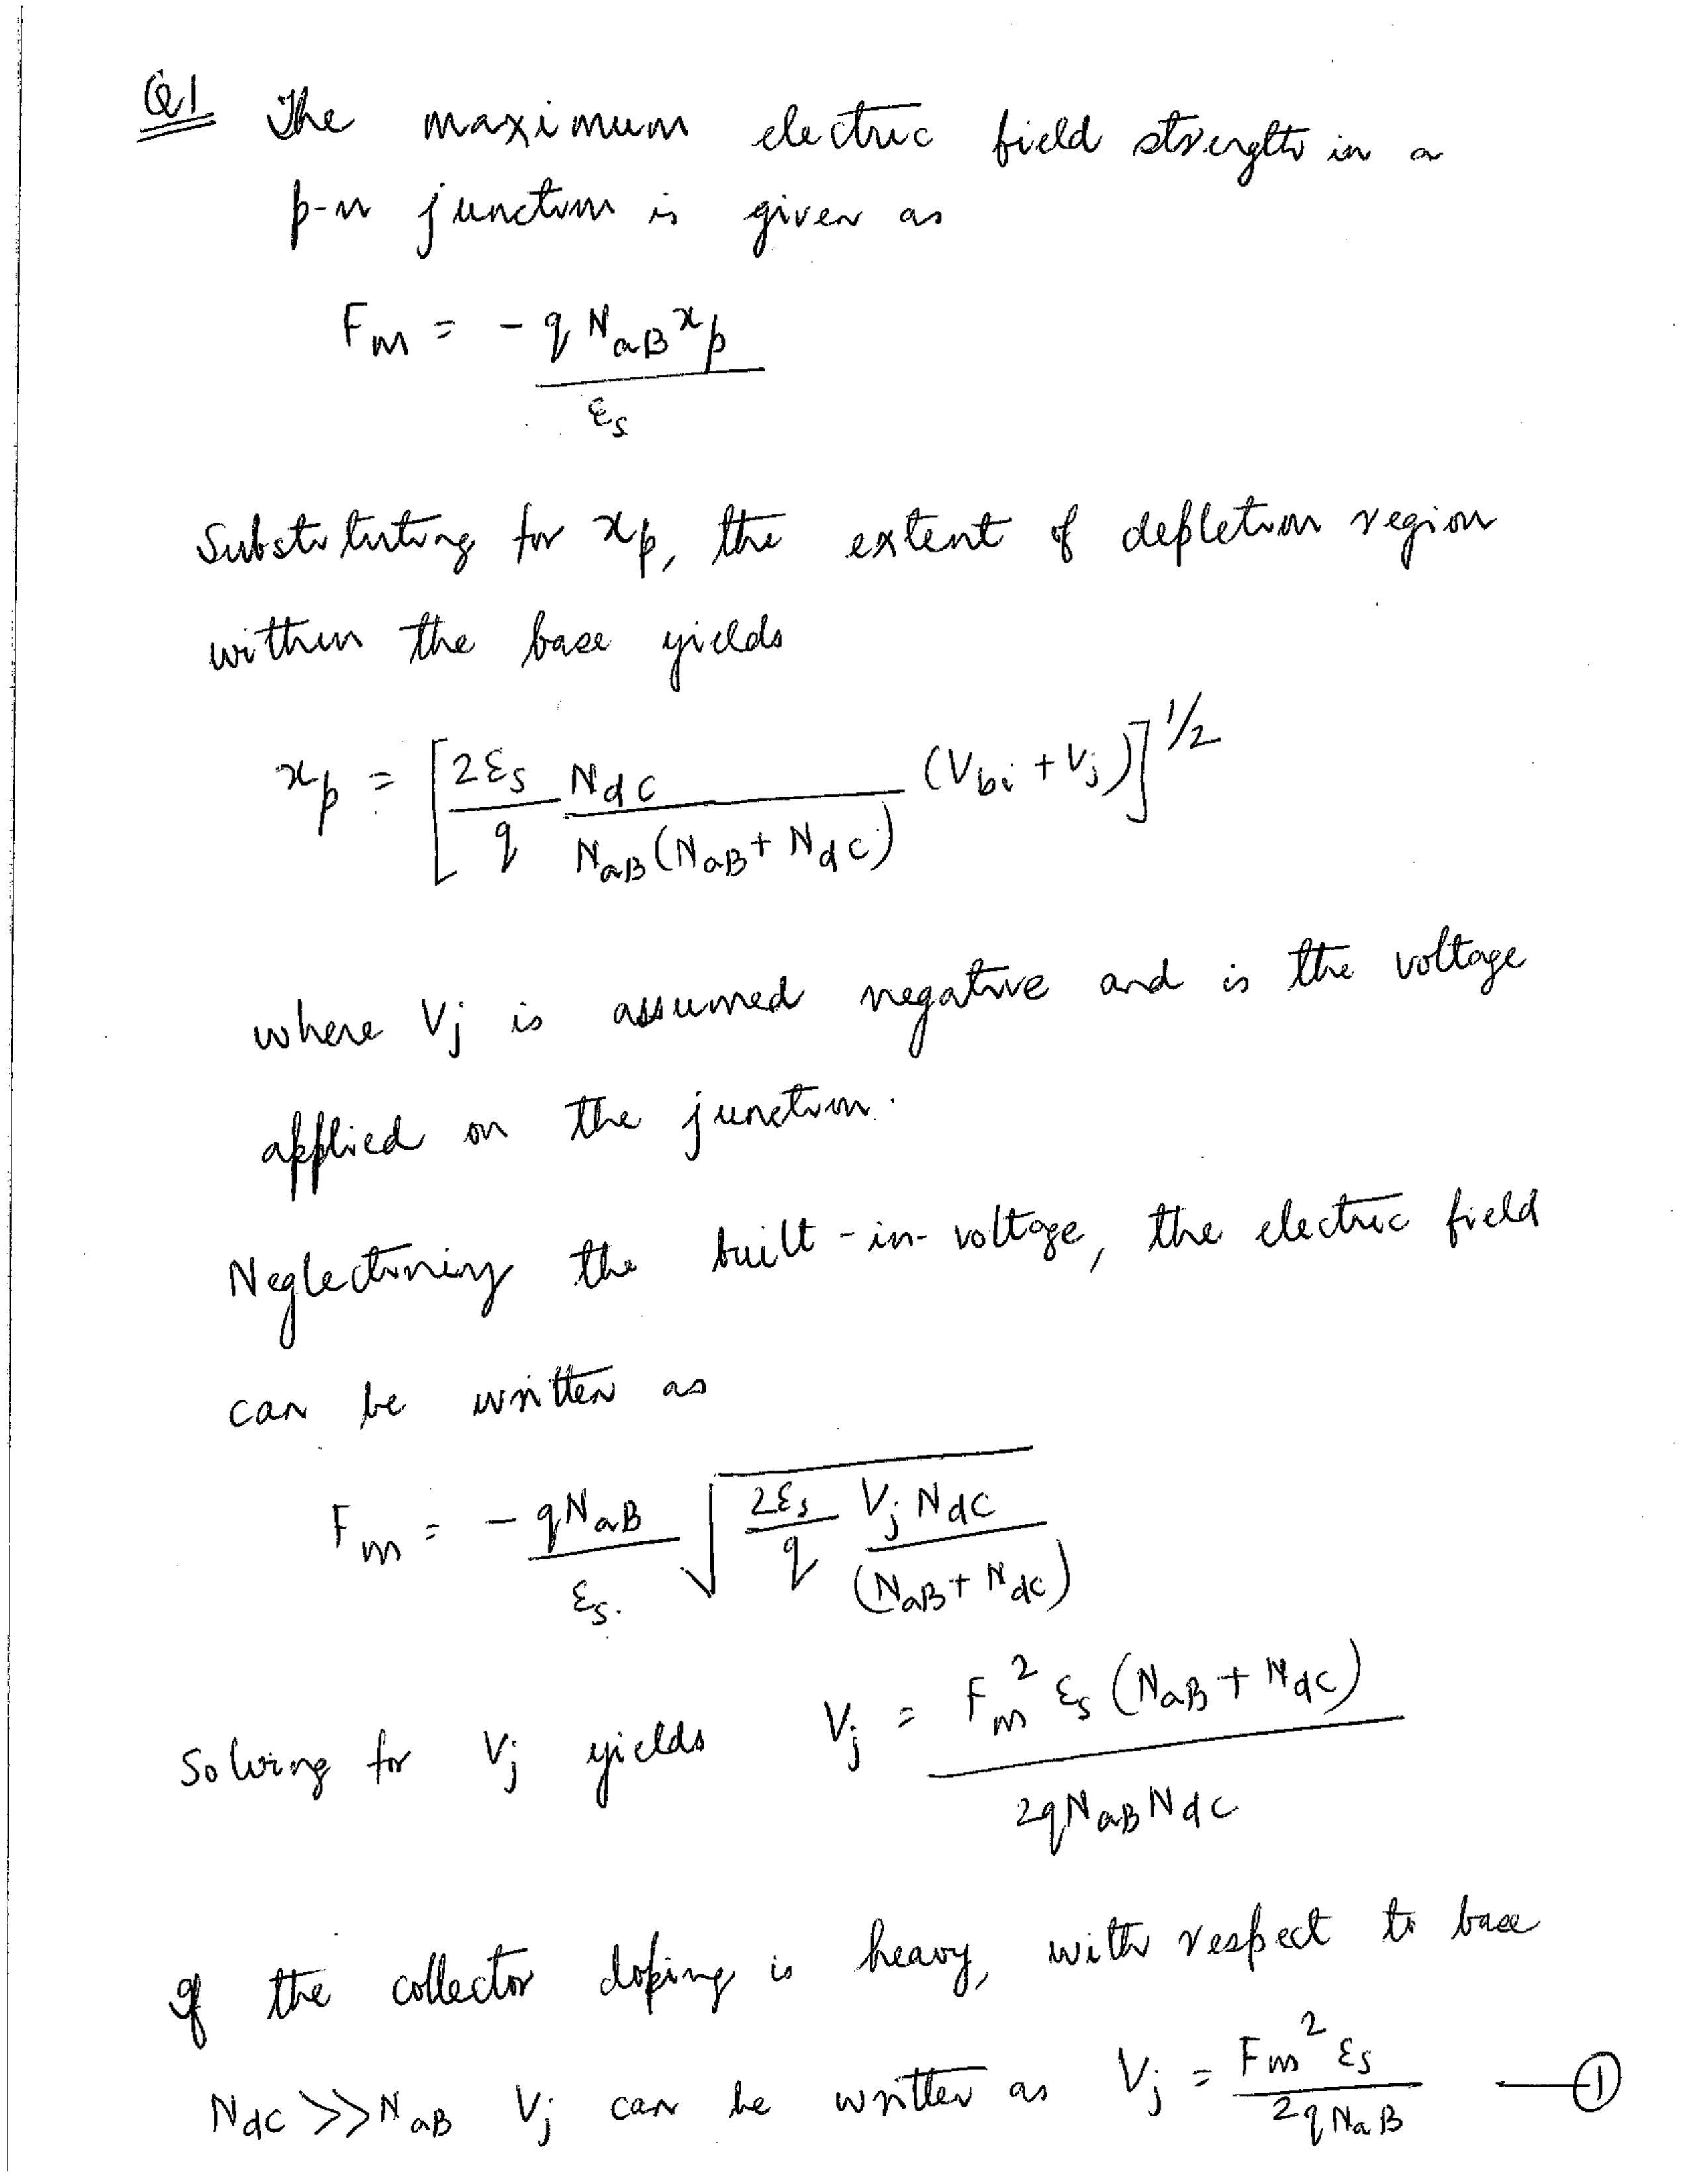 Q1 The maximum electric field strength in a
p-n junction is given as
F_m = - q N_aB x_p / ε_s
Substituting for x_p, the extent of depletion region
within the base yields
x_p = [ 2ε_s / q N_dC / N_aB (N_aB + N_dC) (V_bi + V_j) ]^1/2
where V_j is assumed negative and is the voltage
applied on the junction.
Neglectining the built-in-voltage, the electric field
can be written as
F_m = - q N_aB / ε_s. √( 2ε_s / q V_j N_dC / (N_aB + N_dC) )
Solving for V_j yields V_j = F_m^2 ε_s (N_aB + N_dC) / 2q N_aB N_dC
If the collector doping is heavy, with respect to base
N_dC >> N_aB V_j can be written as V_j = F_m^2 ε_s / 2q N_aB — ①